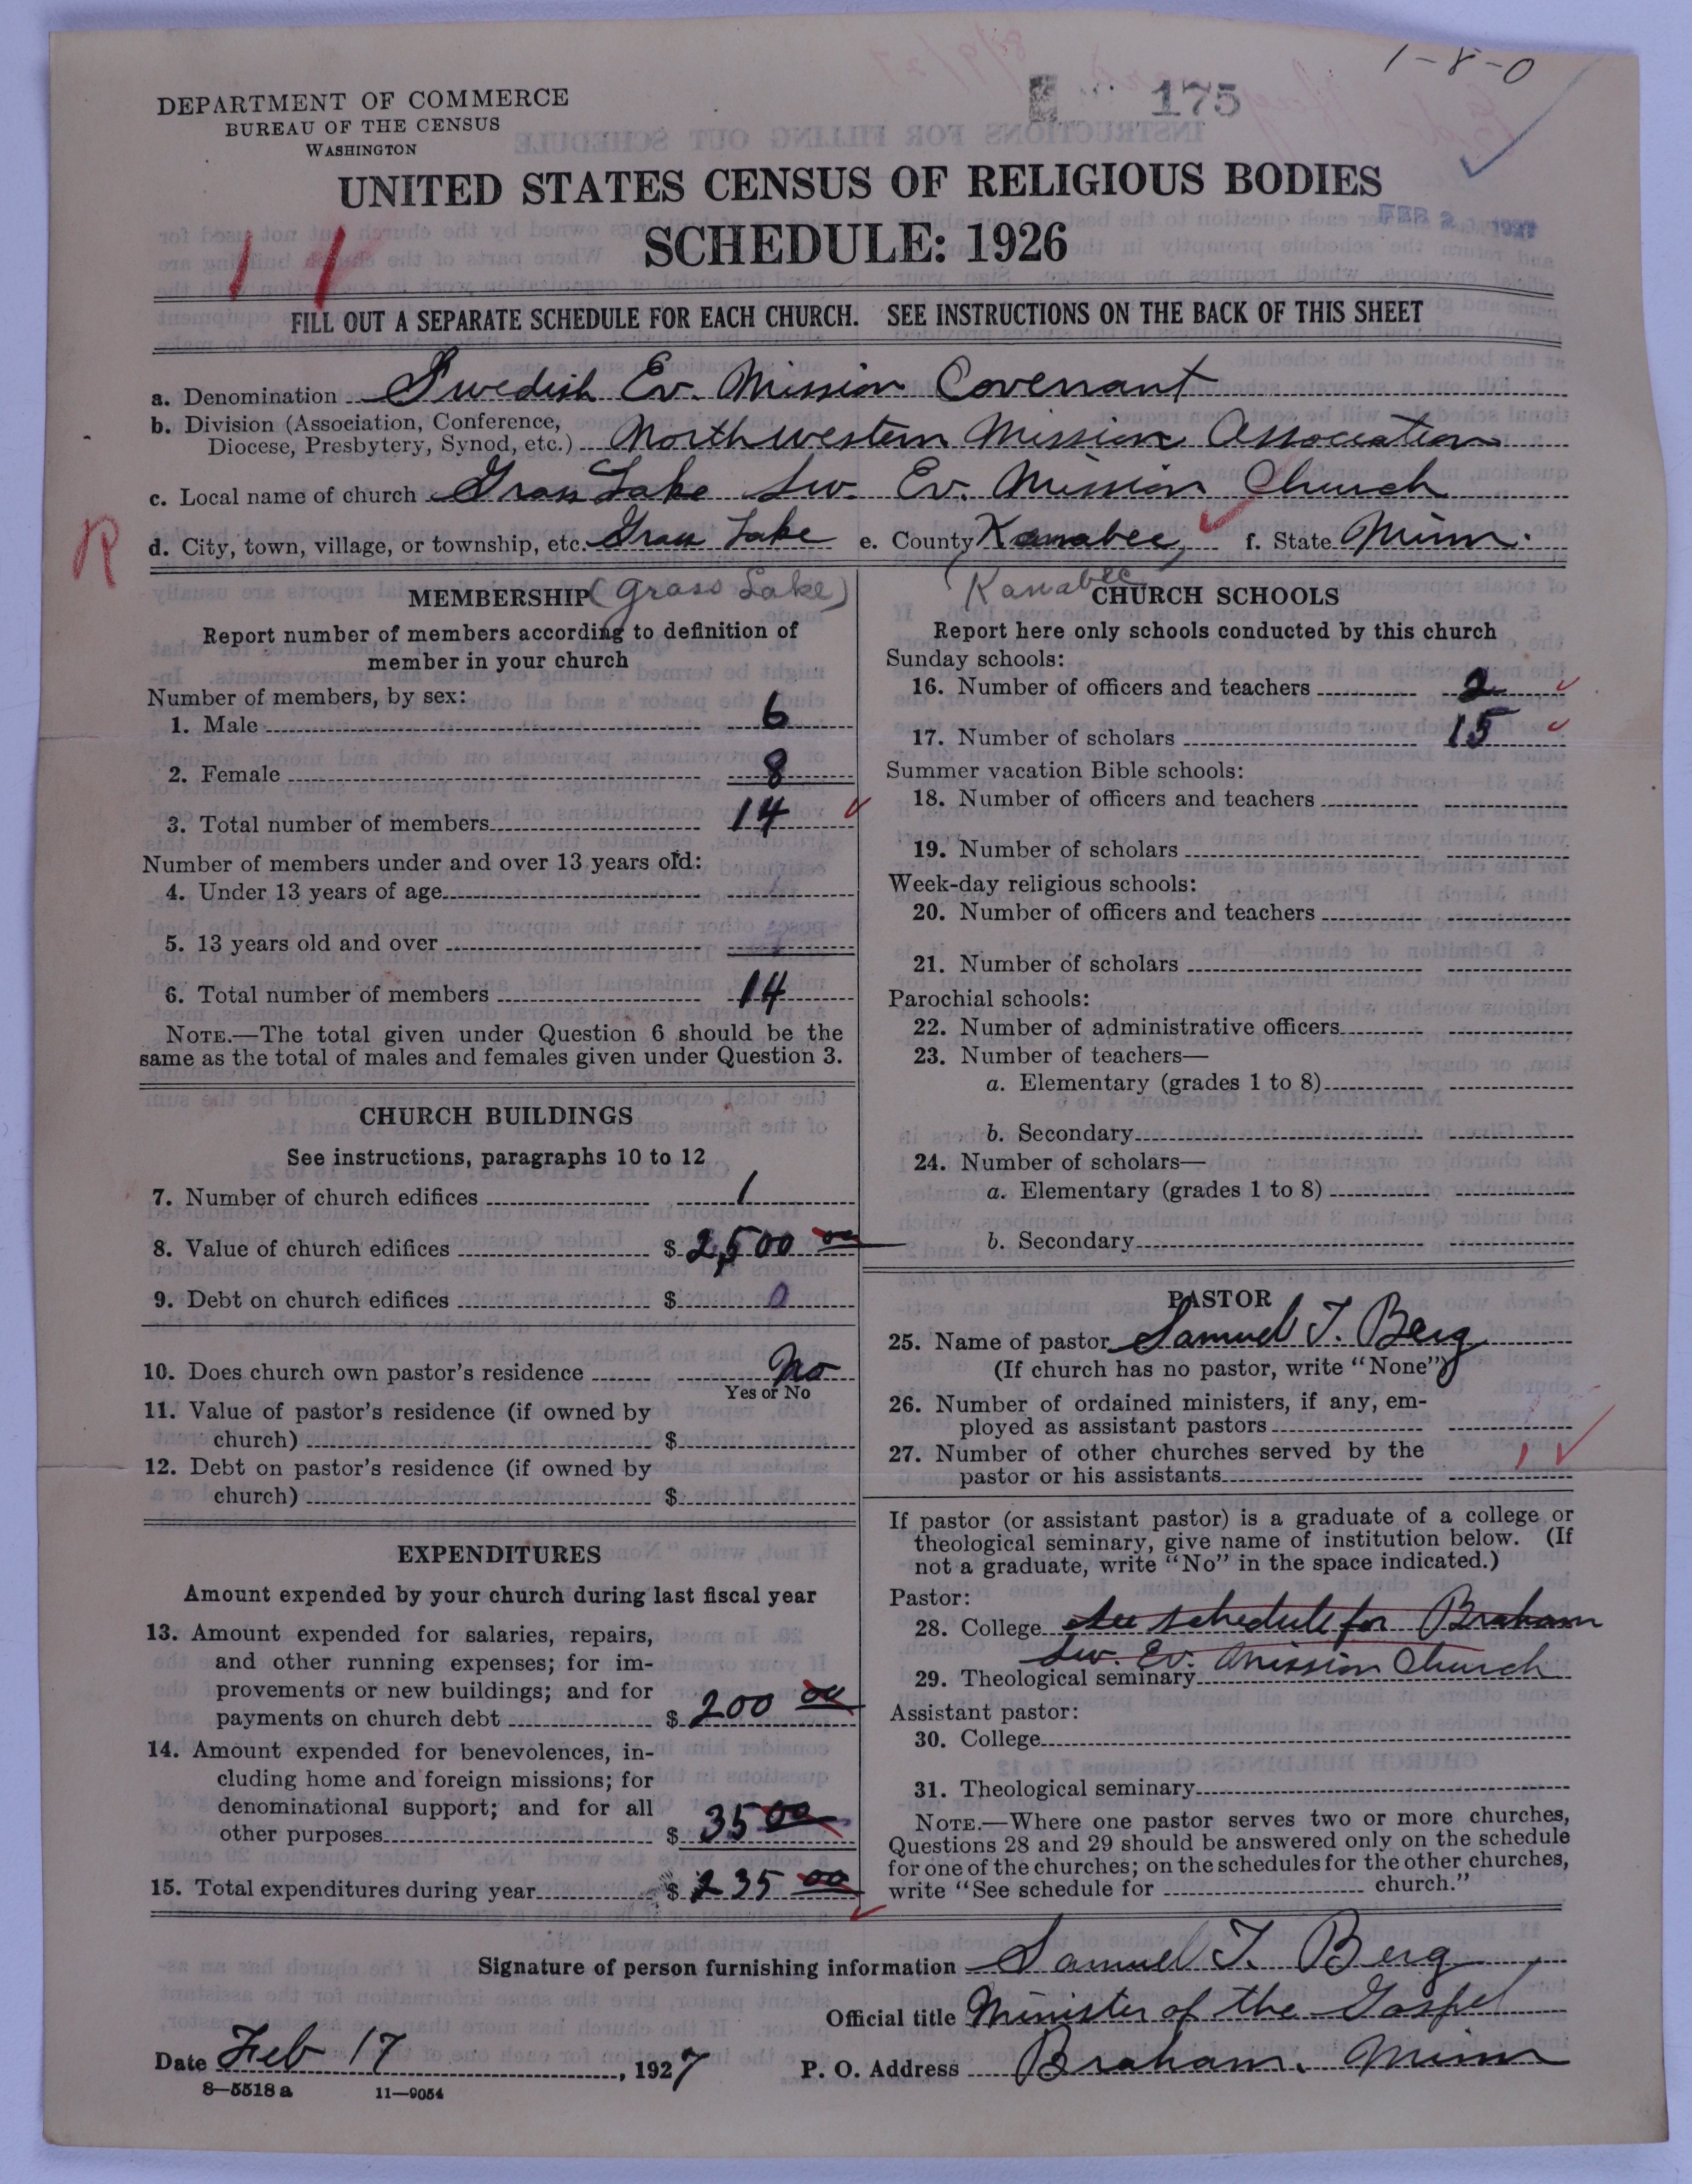 1-8-0
DEPARTMENT OF COMMERCE
BUREAU OF THE CENSUS
WASHINGTON
175
UNITED STATES CENSUS OF RELIGIOUS BODIES
SCHEDULE: 1926
FEB 2 1927
FILL OUT A SEPARATE SCHEDULE FOR EACH CHURCH. SEE INSTRUCTIONS ON THE BACK OF THIS SHEET
a. Denomination Swedish Ev. Mission Covenant
b. Division (Association, Conference,
Diocese, Presbytery, Synod, etc.) Northwestern Mission Association
c. Local name of church Grass Lake Sw. Ev. Mission Church
R
d. City, town, village, or township, etc. Grass Lake e. County Kanabec, f. State Minn.
MEMBERSHIP (Grass Lake)
Report number of members according to definition of
member in your church
Number of members, by sex:
1. Male 6
2. Female 8
3. Total number of members 14
Number of members under and over 13 years old:
4. Under 13 years of age
5. 13 years old and over
6. Total number of members 14
NOTE.—The total given under Question 6 should be the
same as the total of males and females given under Question 3.
CHURCH BUILDINGS
See instructions, paragraphs 10 to 12
7. Number of church edifices 1
8. Value of church edifices $ 2,500 00
9. Debt on church edifices $ 0
10. Does church own pastor's residence No
Yes or No
11. Value of pastor's residence (if owned by
church) $
12. Debt on pastor's residence (if owned by
church) $
EXPENDITURES
Amount expended by your church during last fiscal year
13. Amount expended for salaries, repairs,
and other running expenses; for im-
provements or new buildings; and for
payments on church debt $ 200 00
14. Amount expended for benevolences, in-
cluding home and foreign missions; for
denominational support; and for all
other purposes $ 35 00
15. Total expenditures during year $ 235 00
Kanabec
CHURCH SCHOOLS
Report here only schools conducted by this church
Sunday schools:
16. Number of officers and teachers 2
17. Number of scholars 15
Summer vacation Bible schools:
18. Number of officers and teachers
19. Number of scholars
Week-day religious schools:
20. Number of officers and teachers
21. Number of scholars
Parochial schools:
22. Number of administrative officers
23. Number of teachers—
a. Elementary (grades 1 to 8)
b. Secondary
24. Number of scholars—
a. Elementary (grades 1 to 8)
b. Secondary
PASTOR
25. Name of pastor Samuel T. Berg
(If church has no pastor, write "None")
26. Number of ordained ministers, if any, em-
ployed as assistant pastors
27. Number of other churches served by the
pastor or his assistants 1
If pastor (or assistant pastor) is a graduate of a college or
theological seminary, give name of institution below. (If
not a graduate, write "No" in the space indicated.)
Pastor:
28. College See schedule for Braham
Sw. Ev. Mission Church
29. Theological seminary
Assistant pastor:
30. College
31. Theological seminary
NOTE.—Where one pastor serves two or more churches,
Questions 28 and 29 should be answered only on the schedule
for one of the churches; on the schedules for the other churches,
write "See schedule for church."
Signature of person furnishing information Samuel T. Berg
Official title Minister of the Gospel
Date Feb 17, 1927 P. O. Address Braham, Minn
8-5518 a 11-9054